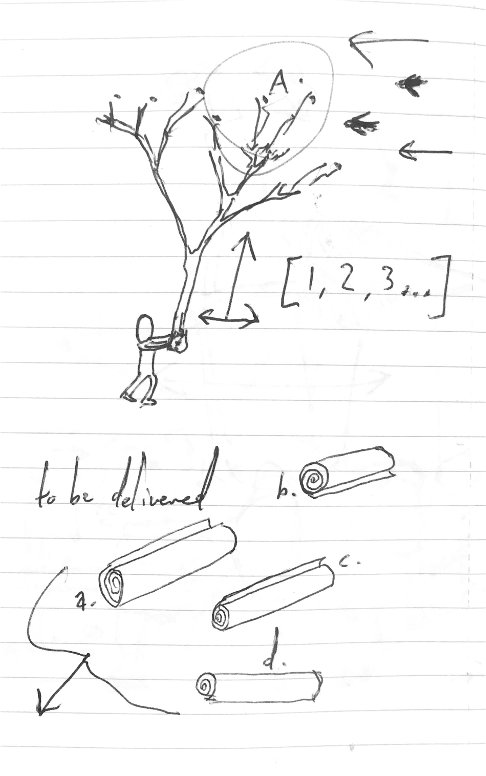 A.
[1, 2, 3...]
to be delivered
b.
a.
c.
d.